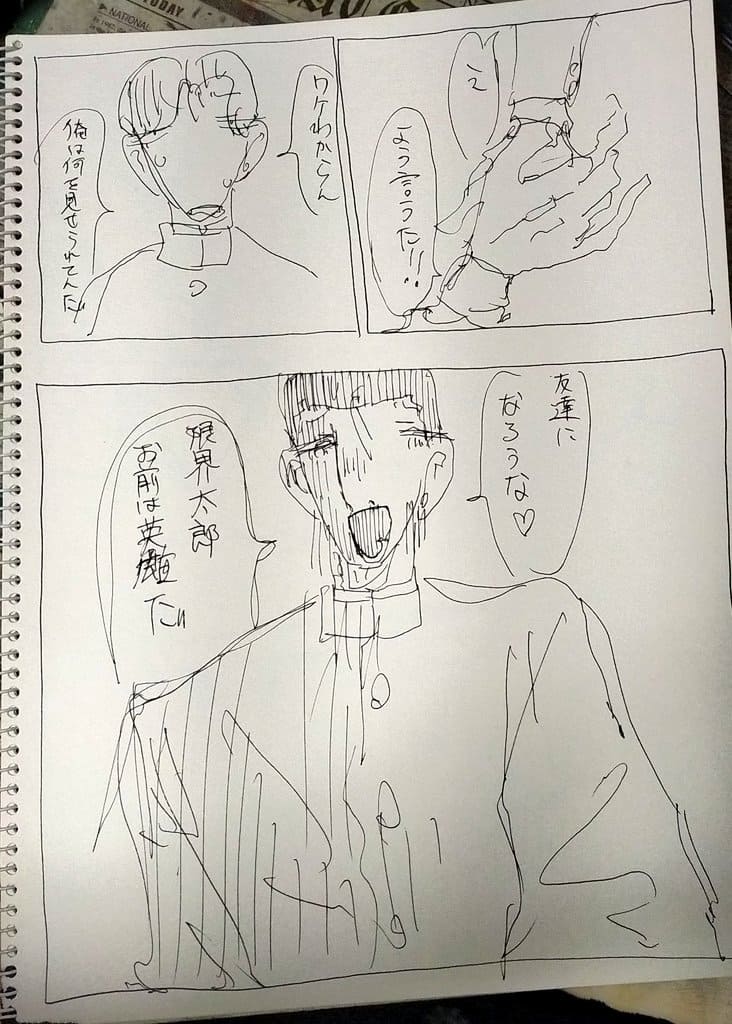 よう言うた!!
ワケわからん
俺は何を見せられてんだ
友達に
なろうな♡
限界太郎
お前は英雄だ!!
TODAY
NATIONAL